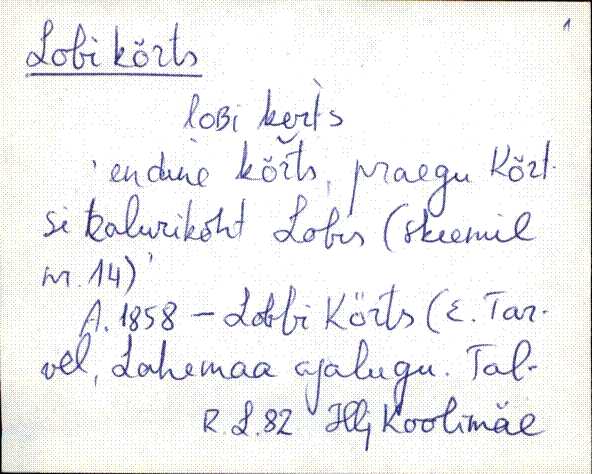 1
Lobi kõrts
loBi kerts
'endine kõrts, praegu Kõrt-
si kalurikoht Lobis (skeemil
nr. 14)'
A. 1858 – Lobbi Körts (E. Tar-
vel, Lahemaa ajalugu. Tal-
R. L. 82 Koolimäe